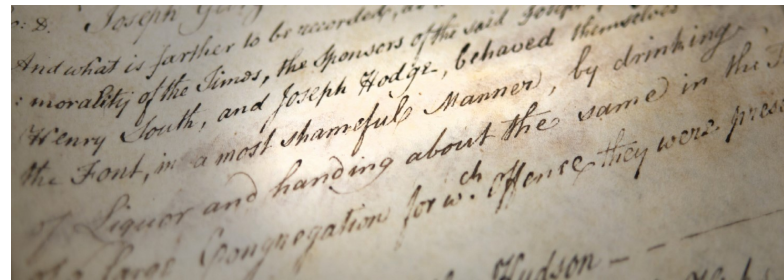 Joseph
And what is farther to be recorded, as
morality of the Times, the Sponsors of the said Joseph
Henry South, and Joseph Hodge, behaved themselves
the Font, in a most shameful Manner, by drinking
of Liquor and handing about the same in the
of a large Congregation for wch. offence they were
Hudson